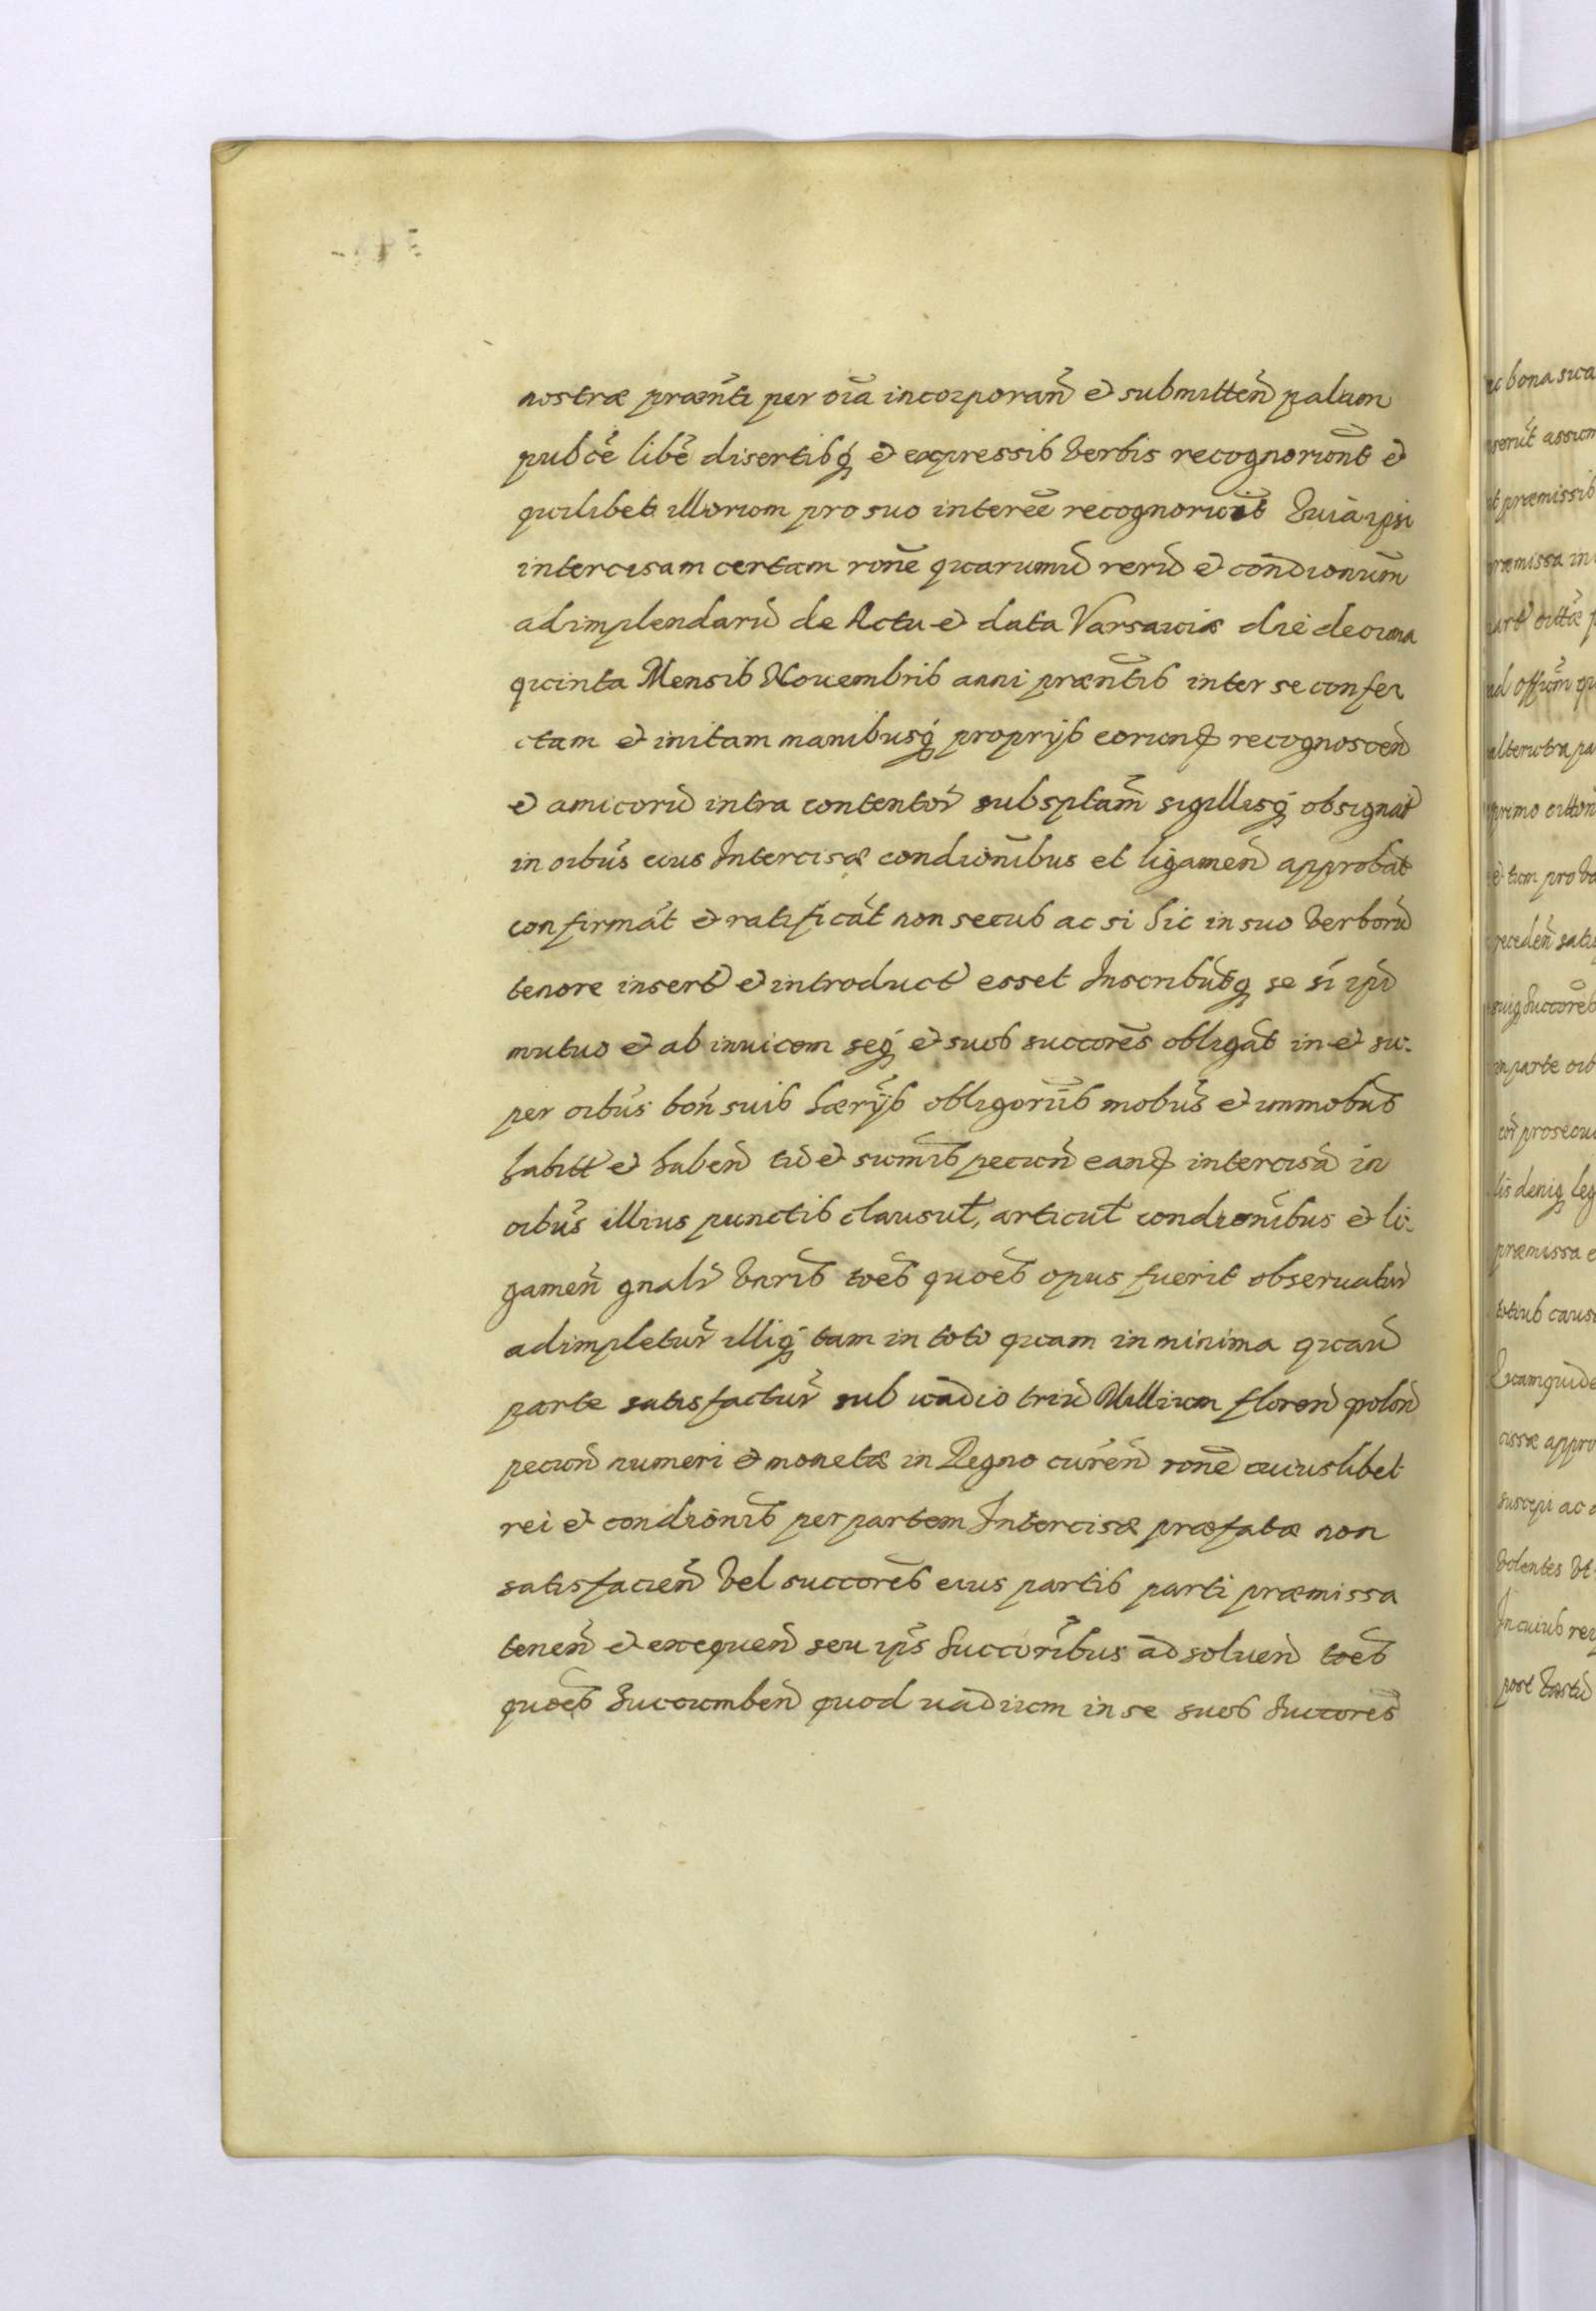 nostræ præn̄ti per oīa incorporan̄ et submitten̄ palam
pubcē libē disertibq́ et expressis verbis recognoriūnt et
quilibet illorum pro suo intereē recognoriūit Quia ipsi
intercisam certam ronē quarumū rerū et condionum̄
adimplendarū de Actu et data Varsauiæ die decima
quinta Mensis Nouembris anni præntīs inter se confe
ctam et initam manibusq́ proprijs eorund̄ recognoscen̄
et amicorū intra contentor̄ subsptam̄ sigillisq́ obsignat̄
in oibūs eius Intercisæ condionībus et ligamen̄ approbāt
confirmāt et ratificāt non secus ac si hic in suo verborū
tenore insert̄ et introduct̄ esset Inscribūtq́ se sī ipī
mutuo et ab inuicem seq́ et suos succorēs obligāt in et su-
per oibūs bon̄ suis hærījs obligoriīs mobūs et immobūs
habitt̄ et haben̄ tū et summīs pecun̄ eand̄ intercisā in
oibūs illius punctis clausul̄, articul̄ condionībus et li-
gamen̄ gnalr̄ vnrīs toēs quoēs opus fuerit obseruatur̄
adimpletur̄ illiq́ tam in toto quam in minima quauī
parte satisfactur̄ sub uādio triū Millium floren̄ polon̄
pecun̄ numeri et monetæ in Regno curēn̄ ronē cuiuslibet
rei et condionīs per partem Intercisæ præfatæ non
satisfacien̄ vel succorēs eius partis parti præmissa
tenen̄ et exequen̄ seu ipīs Succorībus ad soluen̄ toēs
quoēs Succumben̄ quod uādium in se suos Succorēs